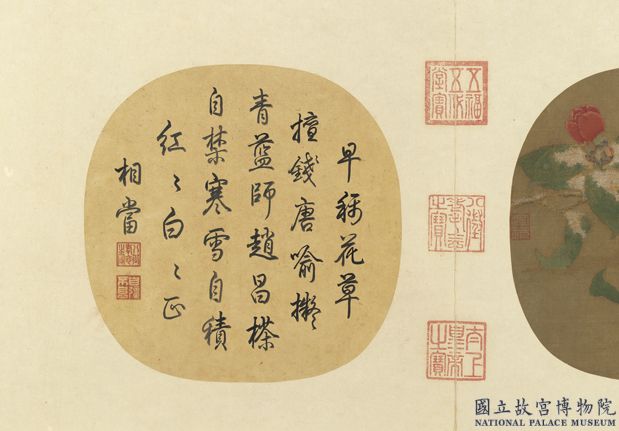 早稱花草
擅錢唐喻擬
青藍師趙昌
自禁寒雪自積
紅〻白〻正
相當
五福
五代
堂寶
八徵
耄念
之寶
太上
皇帝
之寶
國立故宮博物院
NATIONAL PALACE MUSEUM